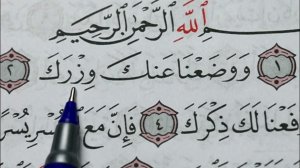 ـسْمِ ٱللَّهِ ٱلرَّحْمَٰنِ ٱلرَّحِيمِ
١ وَوَضَعْنَا عَنكَ وِزْرَكَ ٢
فَعْنَا لَكَ ذِكْرَكَ ٤ فَإِنَّ مَعَ